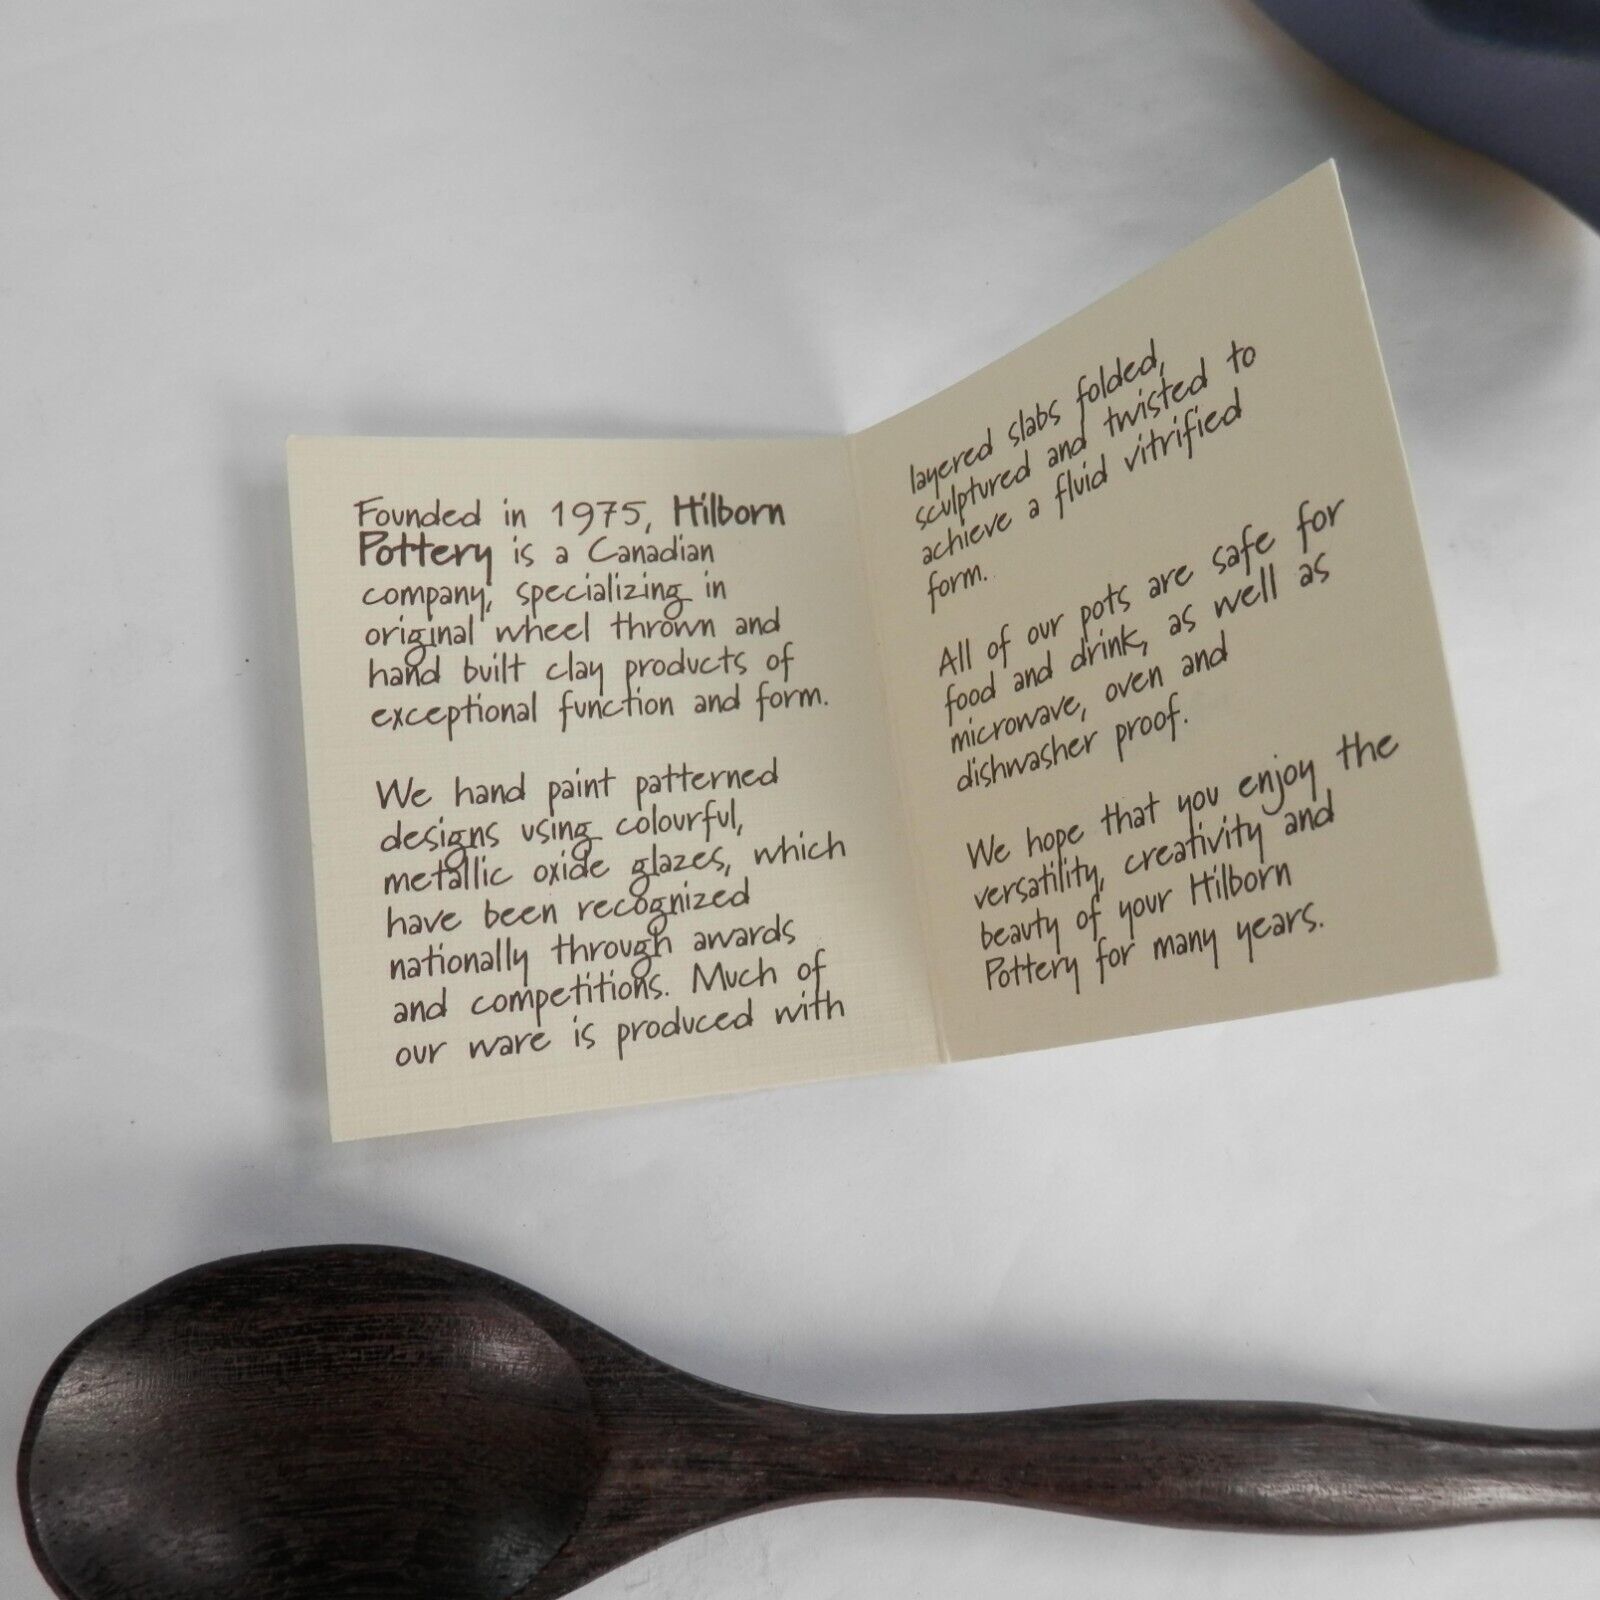 Founded in 1975, Hilborn
Pottery is a Canadian
company, specializing in
original wheel thrown and
hand built clay products of
exceptional function and form.
We hand paint patterned
designs using colourful,
metallic oxide glazes, which
have been recognized
nationally through awards
and competitions. Much of
our ware is produced with
layered slabs folded,
sculptured and twisted to
achieve a fluid vitrified
form.
All of our pots are safe for
food and drink, as well as
microwave, oven and
dishwasher proof.
We hope that you enjoy the
versatility, creativity and
beauty of your Hilborn
Pottery for many years.